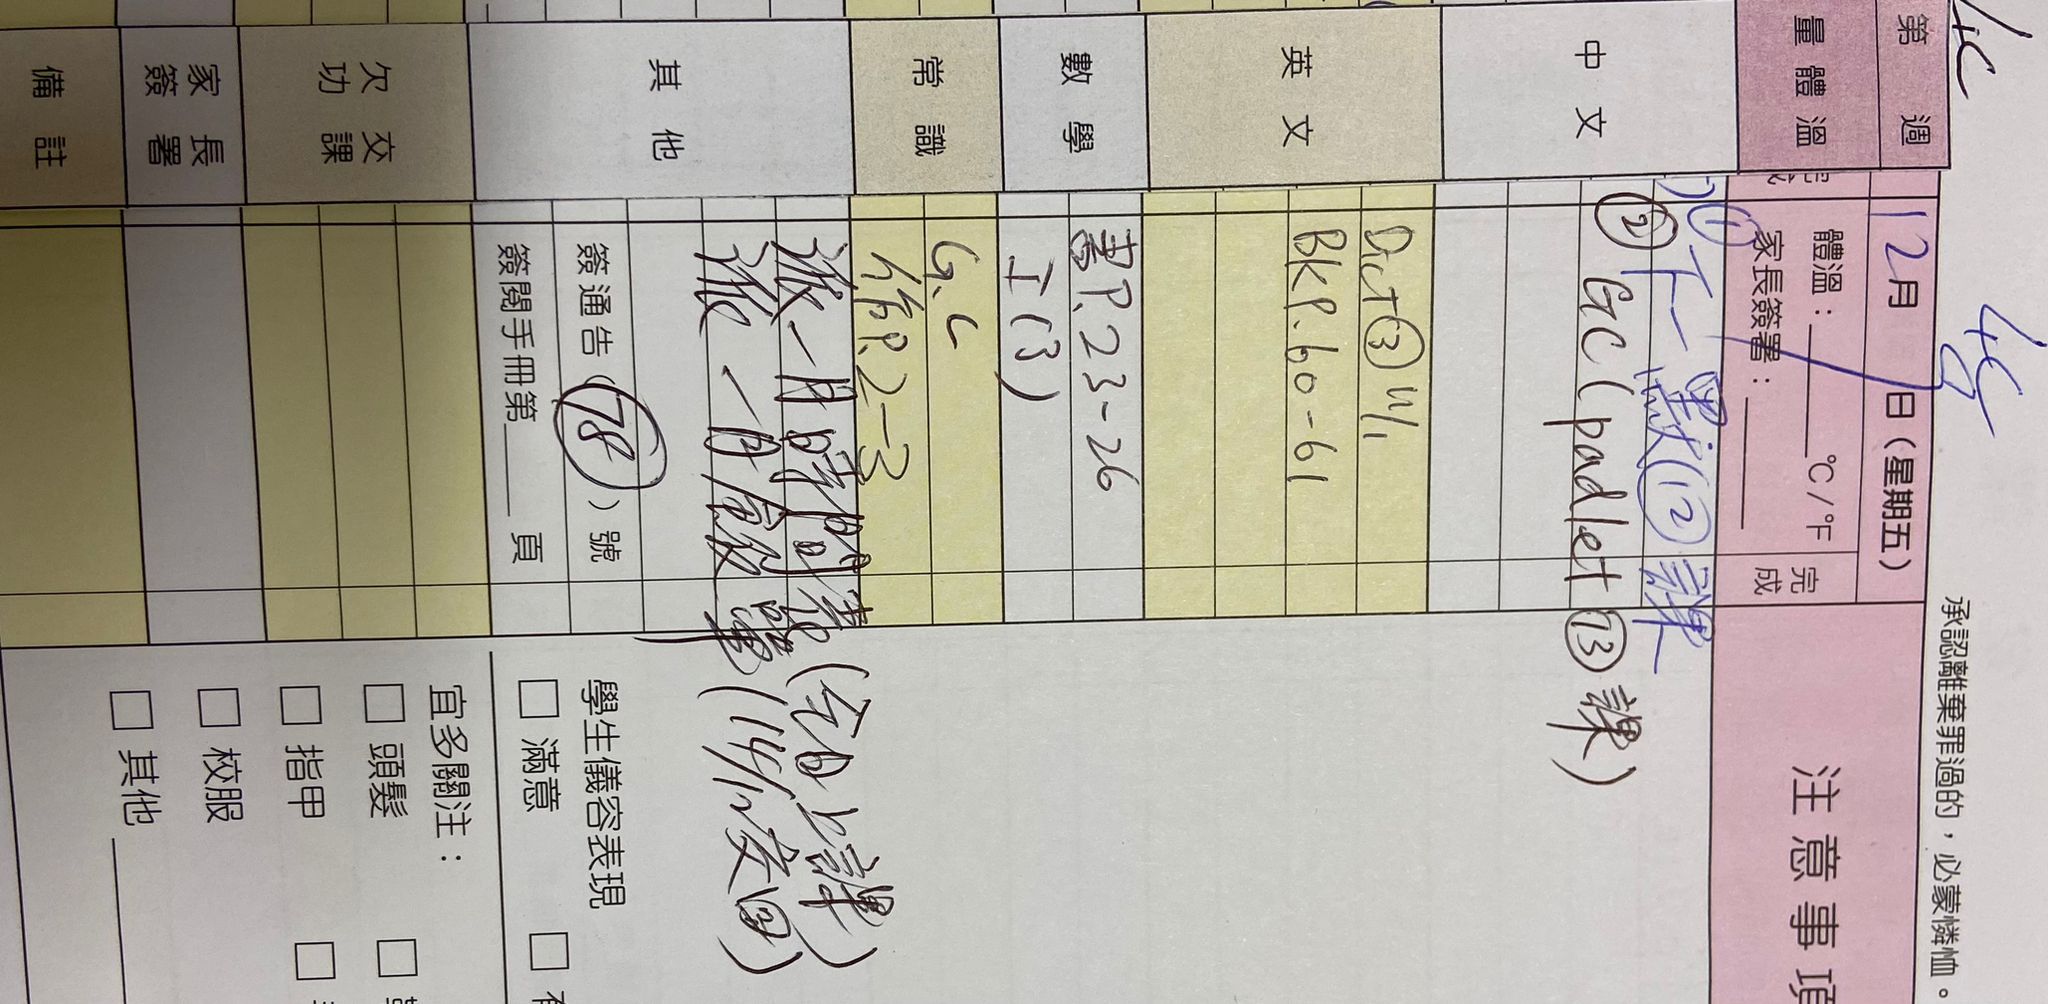 4C
4C
承認離棄罪過的，必蒙憐恤。
第 週 12月 9日（星期五） 注意事項
量體溫 體溫：____°C/°F 完成
家長簽署：____
中文 ① 下一默⑫課
② GC (padlet ⑬課)
英文 Dict③ w/1
BK P.60-61
數學 書P.23-26
工(3)
常識 G.C
作P.2-3
其他 派一月時間表 (今日上課)
派一月飯單 (14/12交回)
簽通告（78）號
簽閱手冊第____頁
欠交功課
家長簽署
備註
學生儀容表現
□ 滿意
宜多關注：
□ 頭髮
□ 指甲
□ 校服
□ 其他____